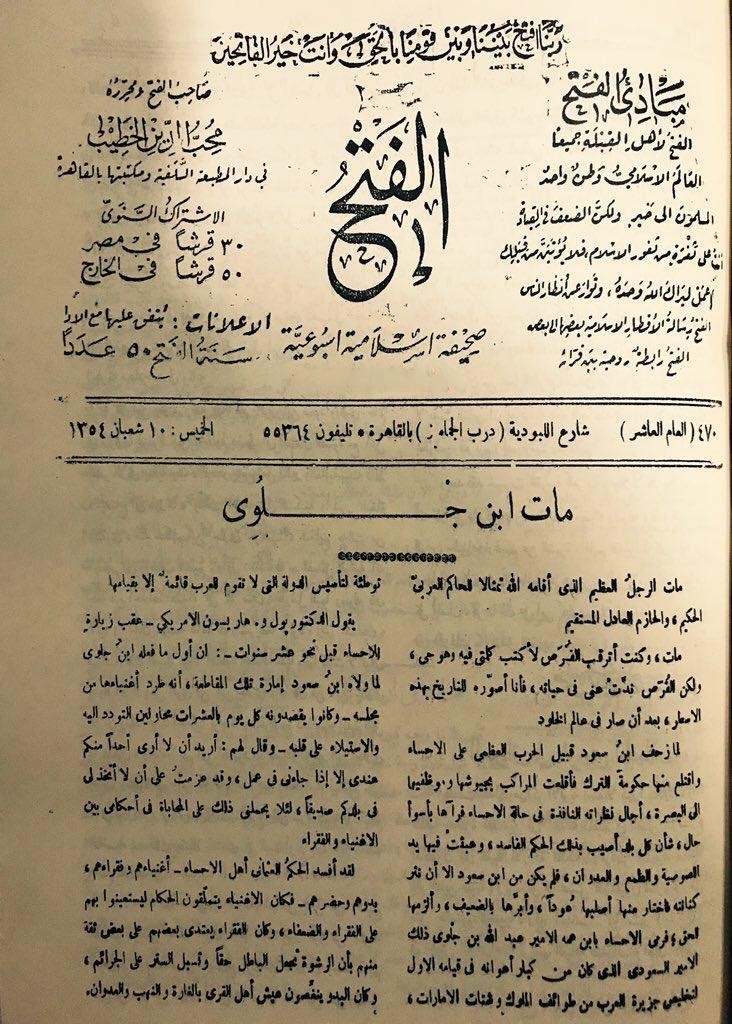 ربنا افتح بيننا وبين قومنا بالحق وأنت خير الفاتحين
مبادئ الفتح
الفتح لأهل القبلة جميعا
العالم الاسلامي وطن واحد
المسلمون الى خير ولكن الضعف في القيادة
على ثغرة من ثغور الاسلام فلا يؤتين من قبلك
اعمل ليراك الله وحده، وتوار عن أنظار الناس
الفتح رسالة الأقطار الاسلامية بعضها الى بعض
الفتح رابطة روحية بين قرائه
الفتح
الى
صحيفة اسلامية اسبوعية
صاحب الفتح ومحرره
محب الدين الخطيب
في دار المطبعة السلفية ومكتبتها بالقاهرة
الاشتراك السنوي
٣٠ قرشا في مصر
٥٠ قرشا في الخارج
الاعلانات: يتفق عليها مع الادارة
سنة الفتح ٥٠ عددا
٤٧٠ (العام العاشر) شارع اللبودية (درب الجماميز) بالقاهرة * تليفون ٥٥٣٦٤ الخميس: ١٠ شعبان ١٣٥٤
مات ابن جلوي
مات الرجل العظيم الذى أقامه الله تمثالا للحاكم العربيّ
الحكيم، والحازم العادل المستقيم
مات، وكنت أترقب الفُرَص لأكتب كلمتى فيه وهو حى،
ولكن الفُرَص ندَّتْ عنى فى حياته، فأنا أصوّره للتاريخ بهذه
الاسطر، بعد أن صار فى عالم الخلود
لما زحف ابنُ سعود قبيل الحرب العظمى على الاحساء
واقتلع منها حكومة الترك فأقلعت المراكب بجيوشها وموظفيها
الى البصرة، أجال نظراته النافذة فى حالة الاحساء فرآها بأسوأ
حال، شأن كل بلد أصيب بذلك الحكم الفاسد، وعبثتْ فيها يد
اللصوصية والطمع والعدوان، فلم يكن من ابن سعود الا أن نثر
كنانته فاختار منها أصلبها عُوداً، وأبرّها بالضعيف، وألزمها
للحق؛ فرمى الاحساء بابن عمه الامير عبد الله بن جلوى ذلك
الامير السعودى الذى كان من كبار أعوانه فى قيامه الاول
لتخليص جزيرة العرب من طوائف الملوك وشتات الامارات،
توطئة لتأسيس الدولة التى لا تقوم للعرب قائمة إلا بقيامها
يقول الدكتور پول و. هاريسون الامريكي - عقب زيارة
للاحساء قبل نحو عشر سنوات -: ان أول ما فعله ابنُ جلوى
لما ولاه ابنُ سعود إمارة تلك المقاطعة، أنه طرد أغنياءها من
مجلسه - وكانوا يقصدونه كل يوم بالعشرات محاولين التودد اليه
والاستيلاء على قلبه - وقال لهم: أريد أن لا أرى أحداً منكم
عندى إلا إذا جاءنى فى عمل، وقد عزمتُ على أن لا أتخذ لى
فى بلدكم صديقاً، لئلا يحملنى ذلك على المحاباة فى أحكامى بين
الاغنياء والفقراء
لقد أفسد الحكمُ العثمانى أهل الاحساء - أغنياءهم وفقراءهم،
بدوهم وحضرهم - فكان الاغنياء يتملّقون الحكام ليستعينوا بهم
على الفقراء والضعفاء، وكان الفقراء يعتدى بعضهم على بعض ثقة
منهم بأن الرشوة تجعل الباطل حقاً وتسبل الستر على الجرائم،
وكان البدو ينغّصون عيش أهل القرى بالغارة والنهب والعدوان.